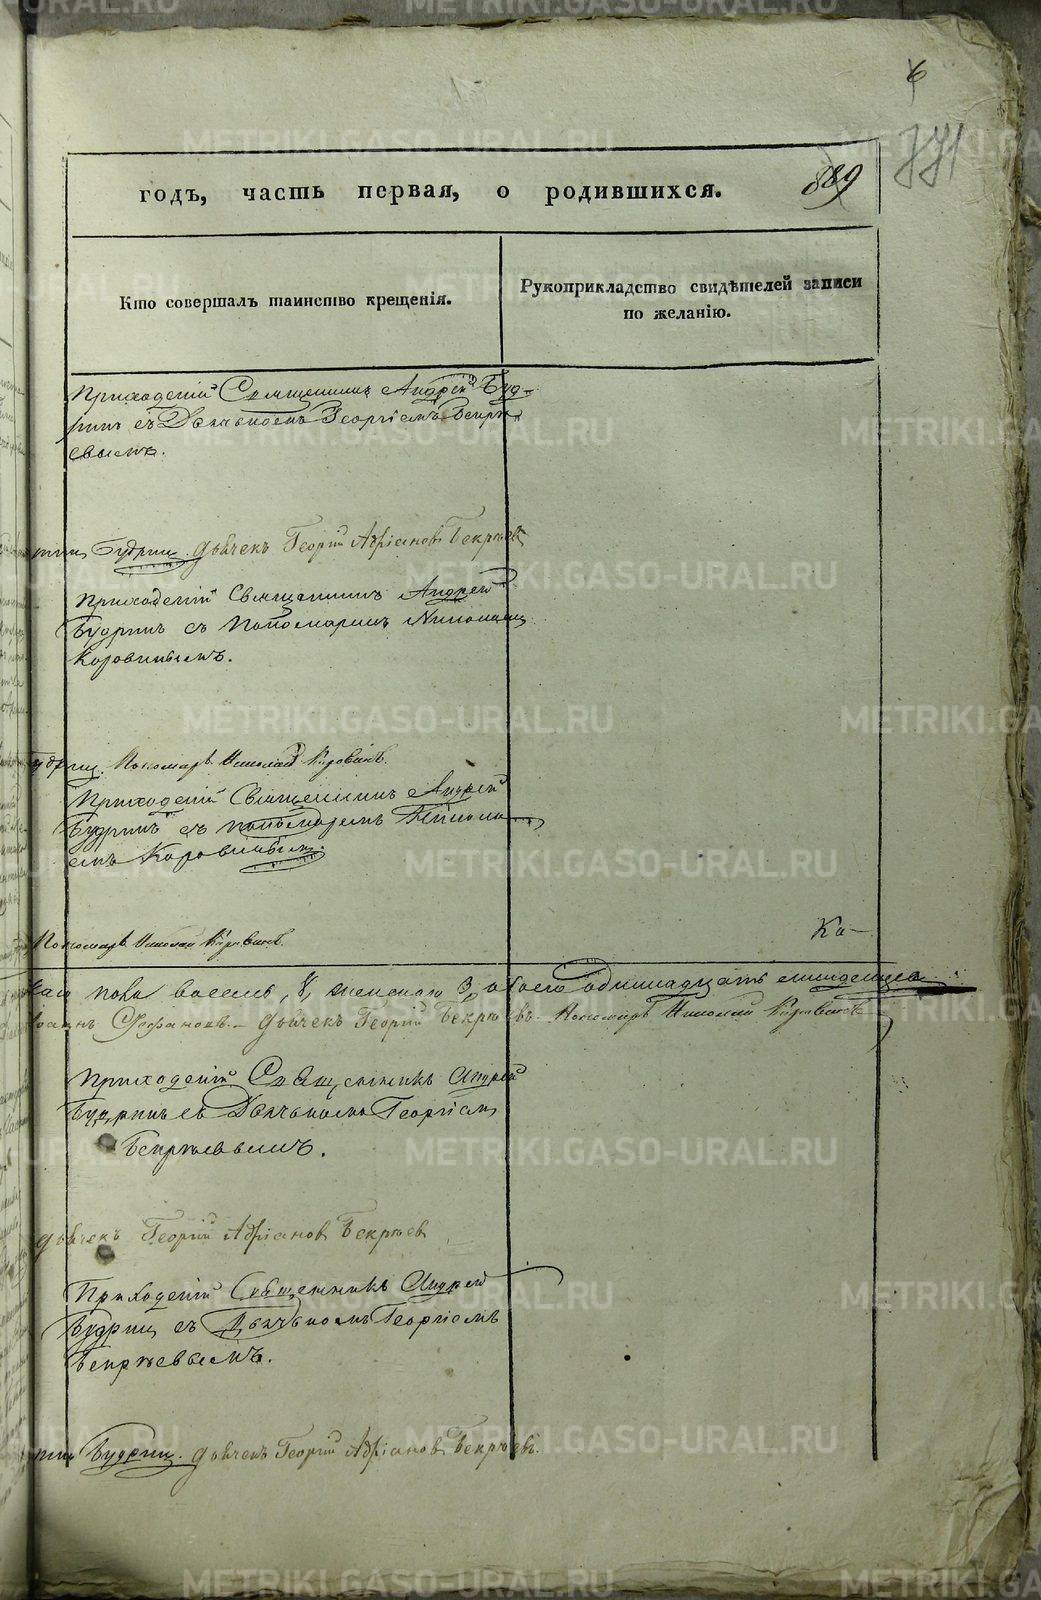 6
771
889
годъ, часть первая, о родившихся.
Кто совершалъ таинство крещенія.
Рукоприкладство свидѣтелей записи
по желанію.
Приходскій Священникъ Андрей Буд-
ринъ съ Дьячькомъ Георгіемъ Бекрѣ
евымъ.
Будринъ. Дьячекъ Георгій Адріановъ Бекрѣевъ
Приходскій Священникъ Андрей
Будринъ съ Пономаремъ Николаемъ
Коровинымъ.
Пономарь Николай Коровинъ.
Приходскій Священникъ Андрей
Будринъ съ пономаремъ Никола
емъ Коровинымъ.
Пономарь Николай Коровинъ.
Ка-
пола восемь, 8, женскаго 3, обоего одиннадцать младенцевъ
Дьячекъ Георгій Бекрѣевъ. Пономарь Николай Коровинъ
Приходскій Священникъ Андрей
Будринъ съ Дьячькомъ Георгіемъ
Бекрѣевымъ.
Дьячекъ Георгій Адріановъ Бекрѣевъ
Приходскій Священникъ Андрей
Будринъ съ Дьячькомъ Георгіемъ
Бекрѣевымъ.
Будринъ. Дьячекъ Георгій Адріановъ Бекрѣевъ.
METRIKI.GASO-URAL.RU